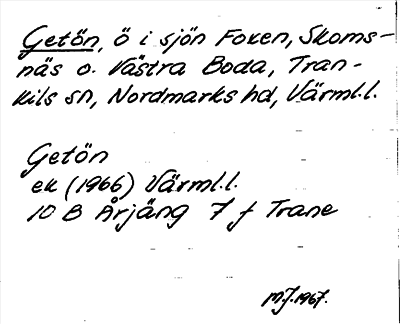 Getön, ö i sjön Foxen, Skoms-
näs o. Västra Boda, Tran-
kils sn, Nordmarks hd, Värml.l.
Getön
ek (1966) Värml.l.
10 B Årjäng 7 f Trane
MJ.1967.